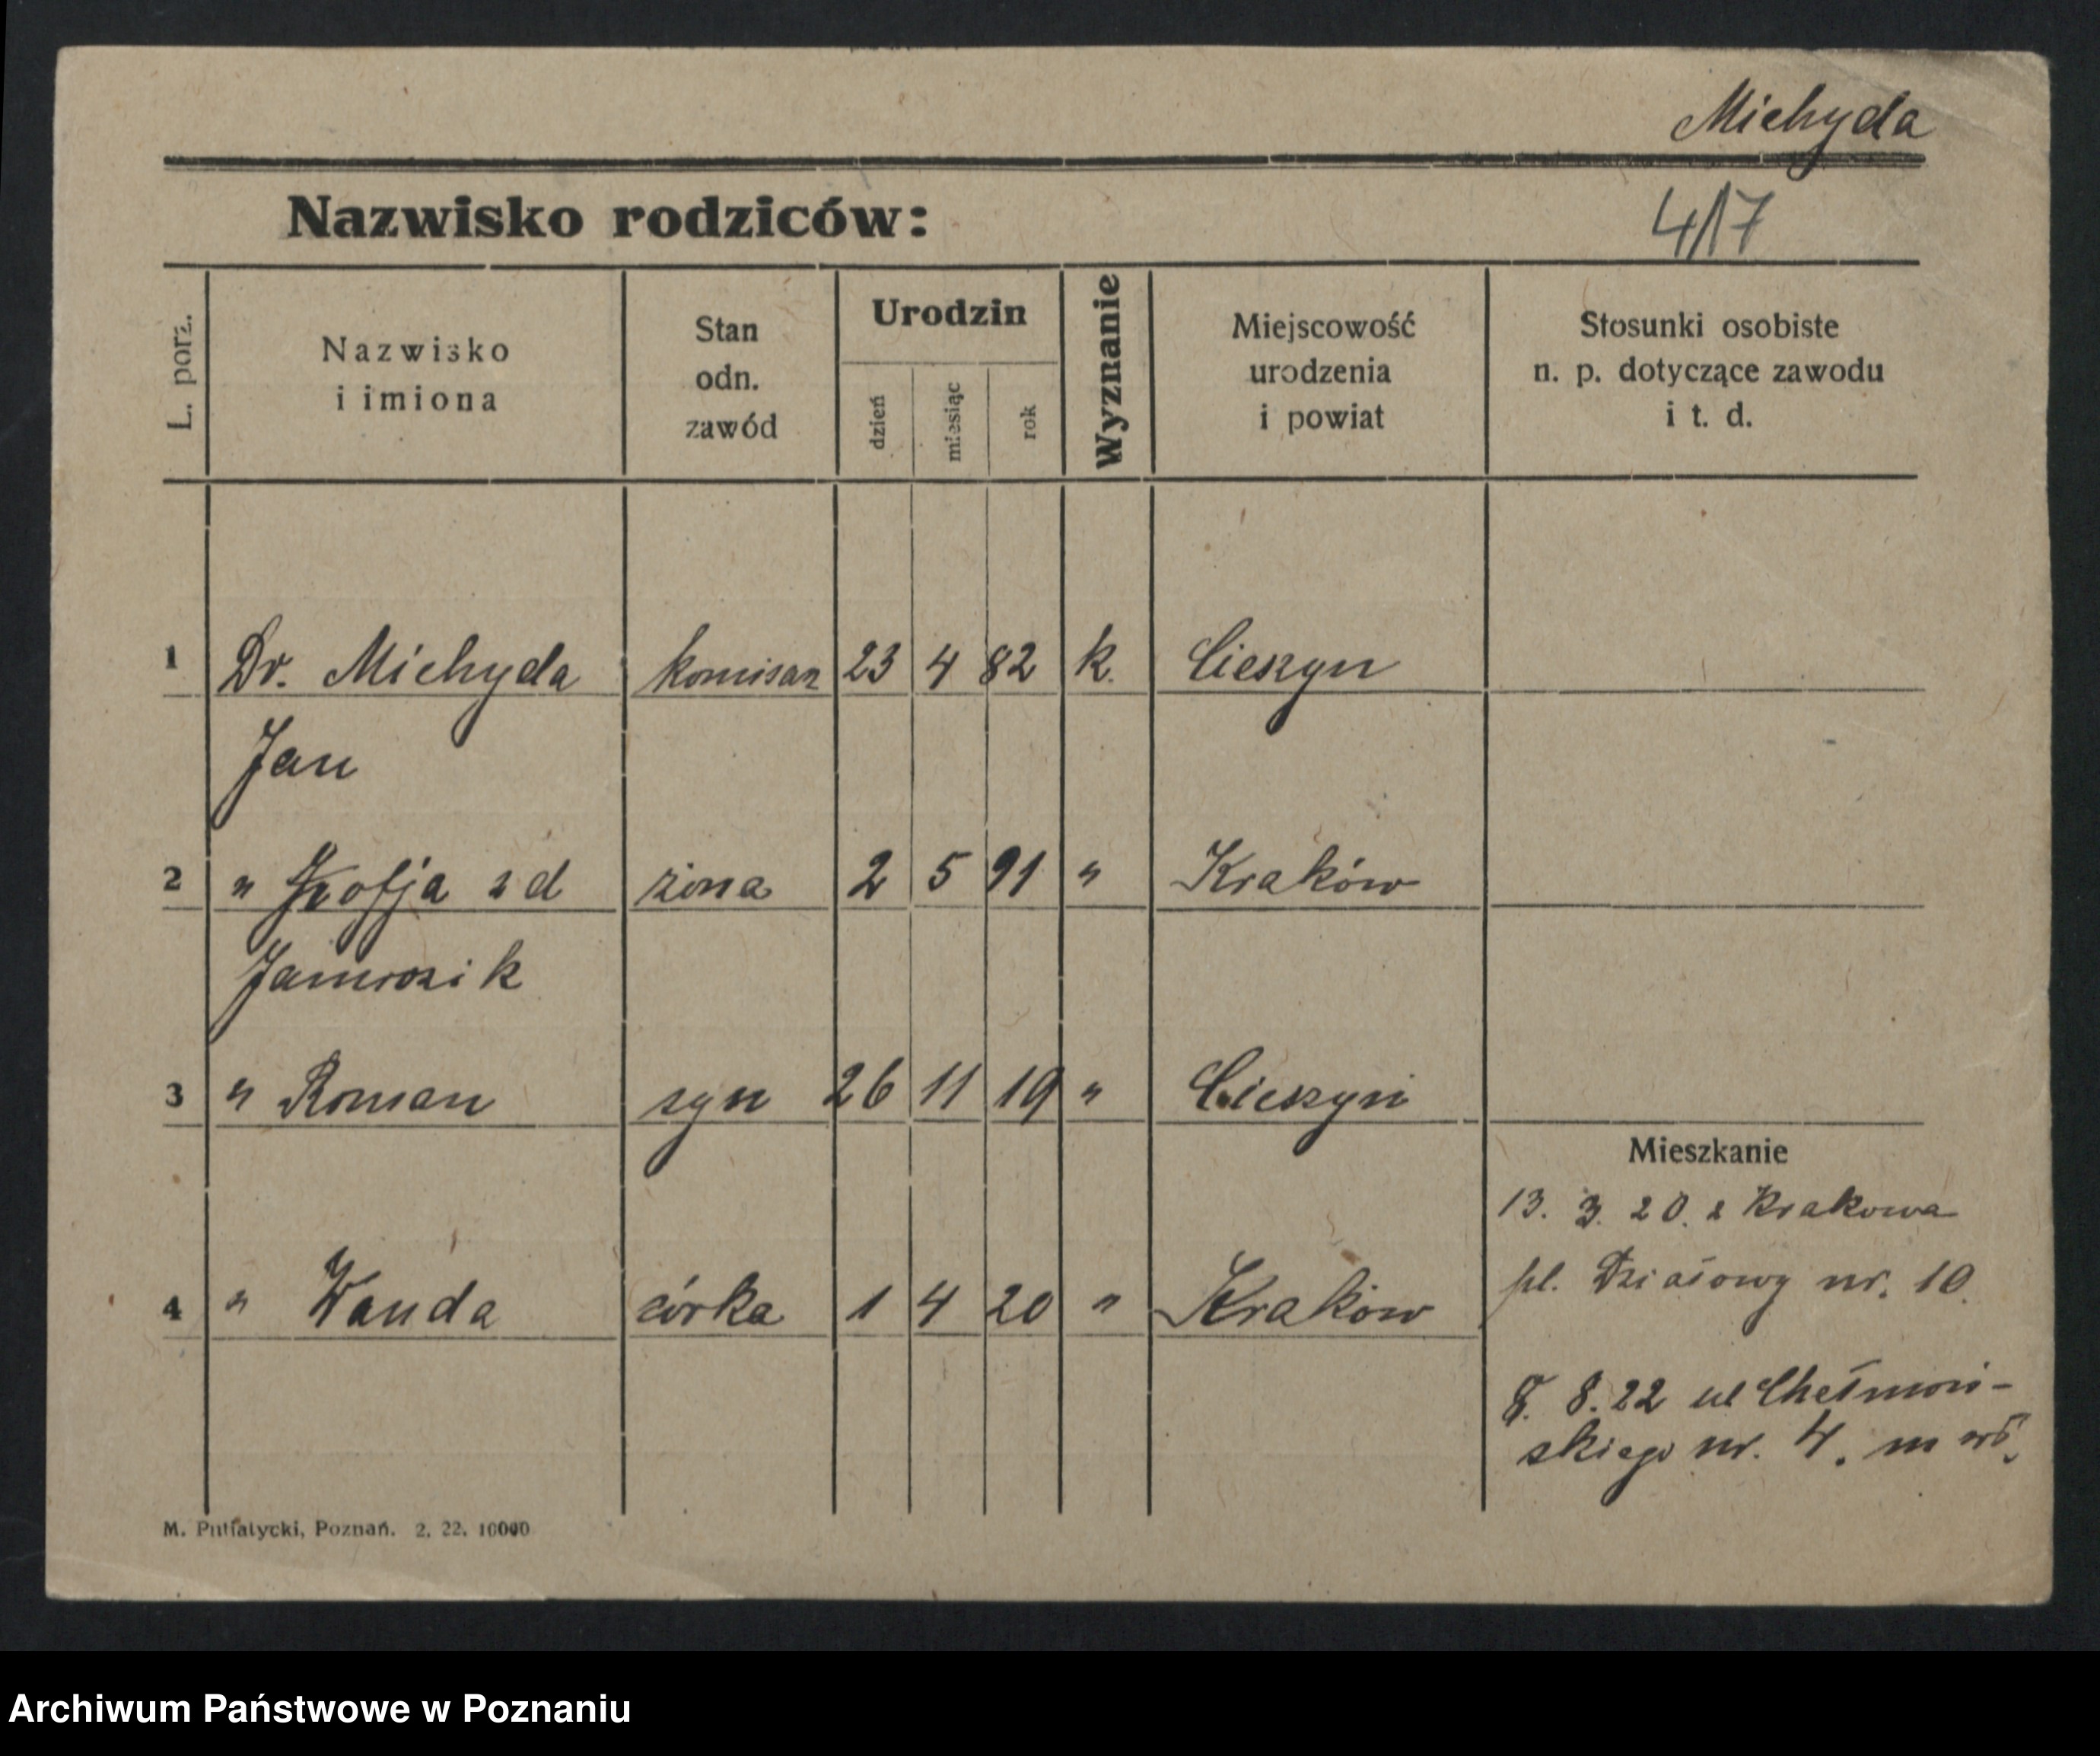 Michyda
Nazwisko rodziców:
417
L. porz.
Nazwisko
i imiona
Stan
odn.
zawód
Urodzin
dzień
miesiąc
rok
Wyznanie
Miejscowość
urodzenia
i powiat
Stosunki osobiste
n. p. dotyczące zawodu
i t. d.
1 Dr. Michyda komisarz 23 4 82 k. Cieszyn
Jan
2 " Zofja z d żona 2 5 91 " Kraków
Jamrozik
3 " Roman syn 26 11 19 " Cieszyn
Mieszkanie
13. 3. 20. z Krakowa
pl. Działowy nr. 10.
4 " Wanda córka 1 4 20 " Kraków
8. 8. 22 ul Chełmoń-
skiego nr. 4. m
M. Putiatycki, Poznań. 2. 22. 10000
Archiwum Państwowe w Poznaniu